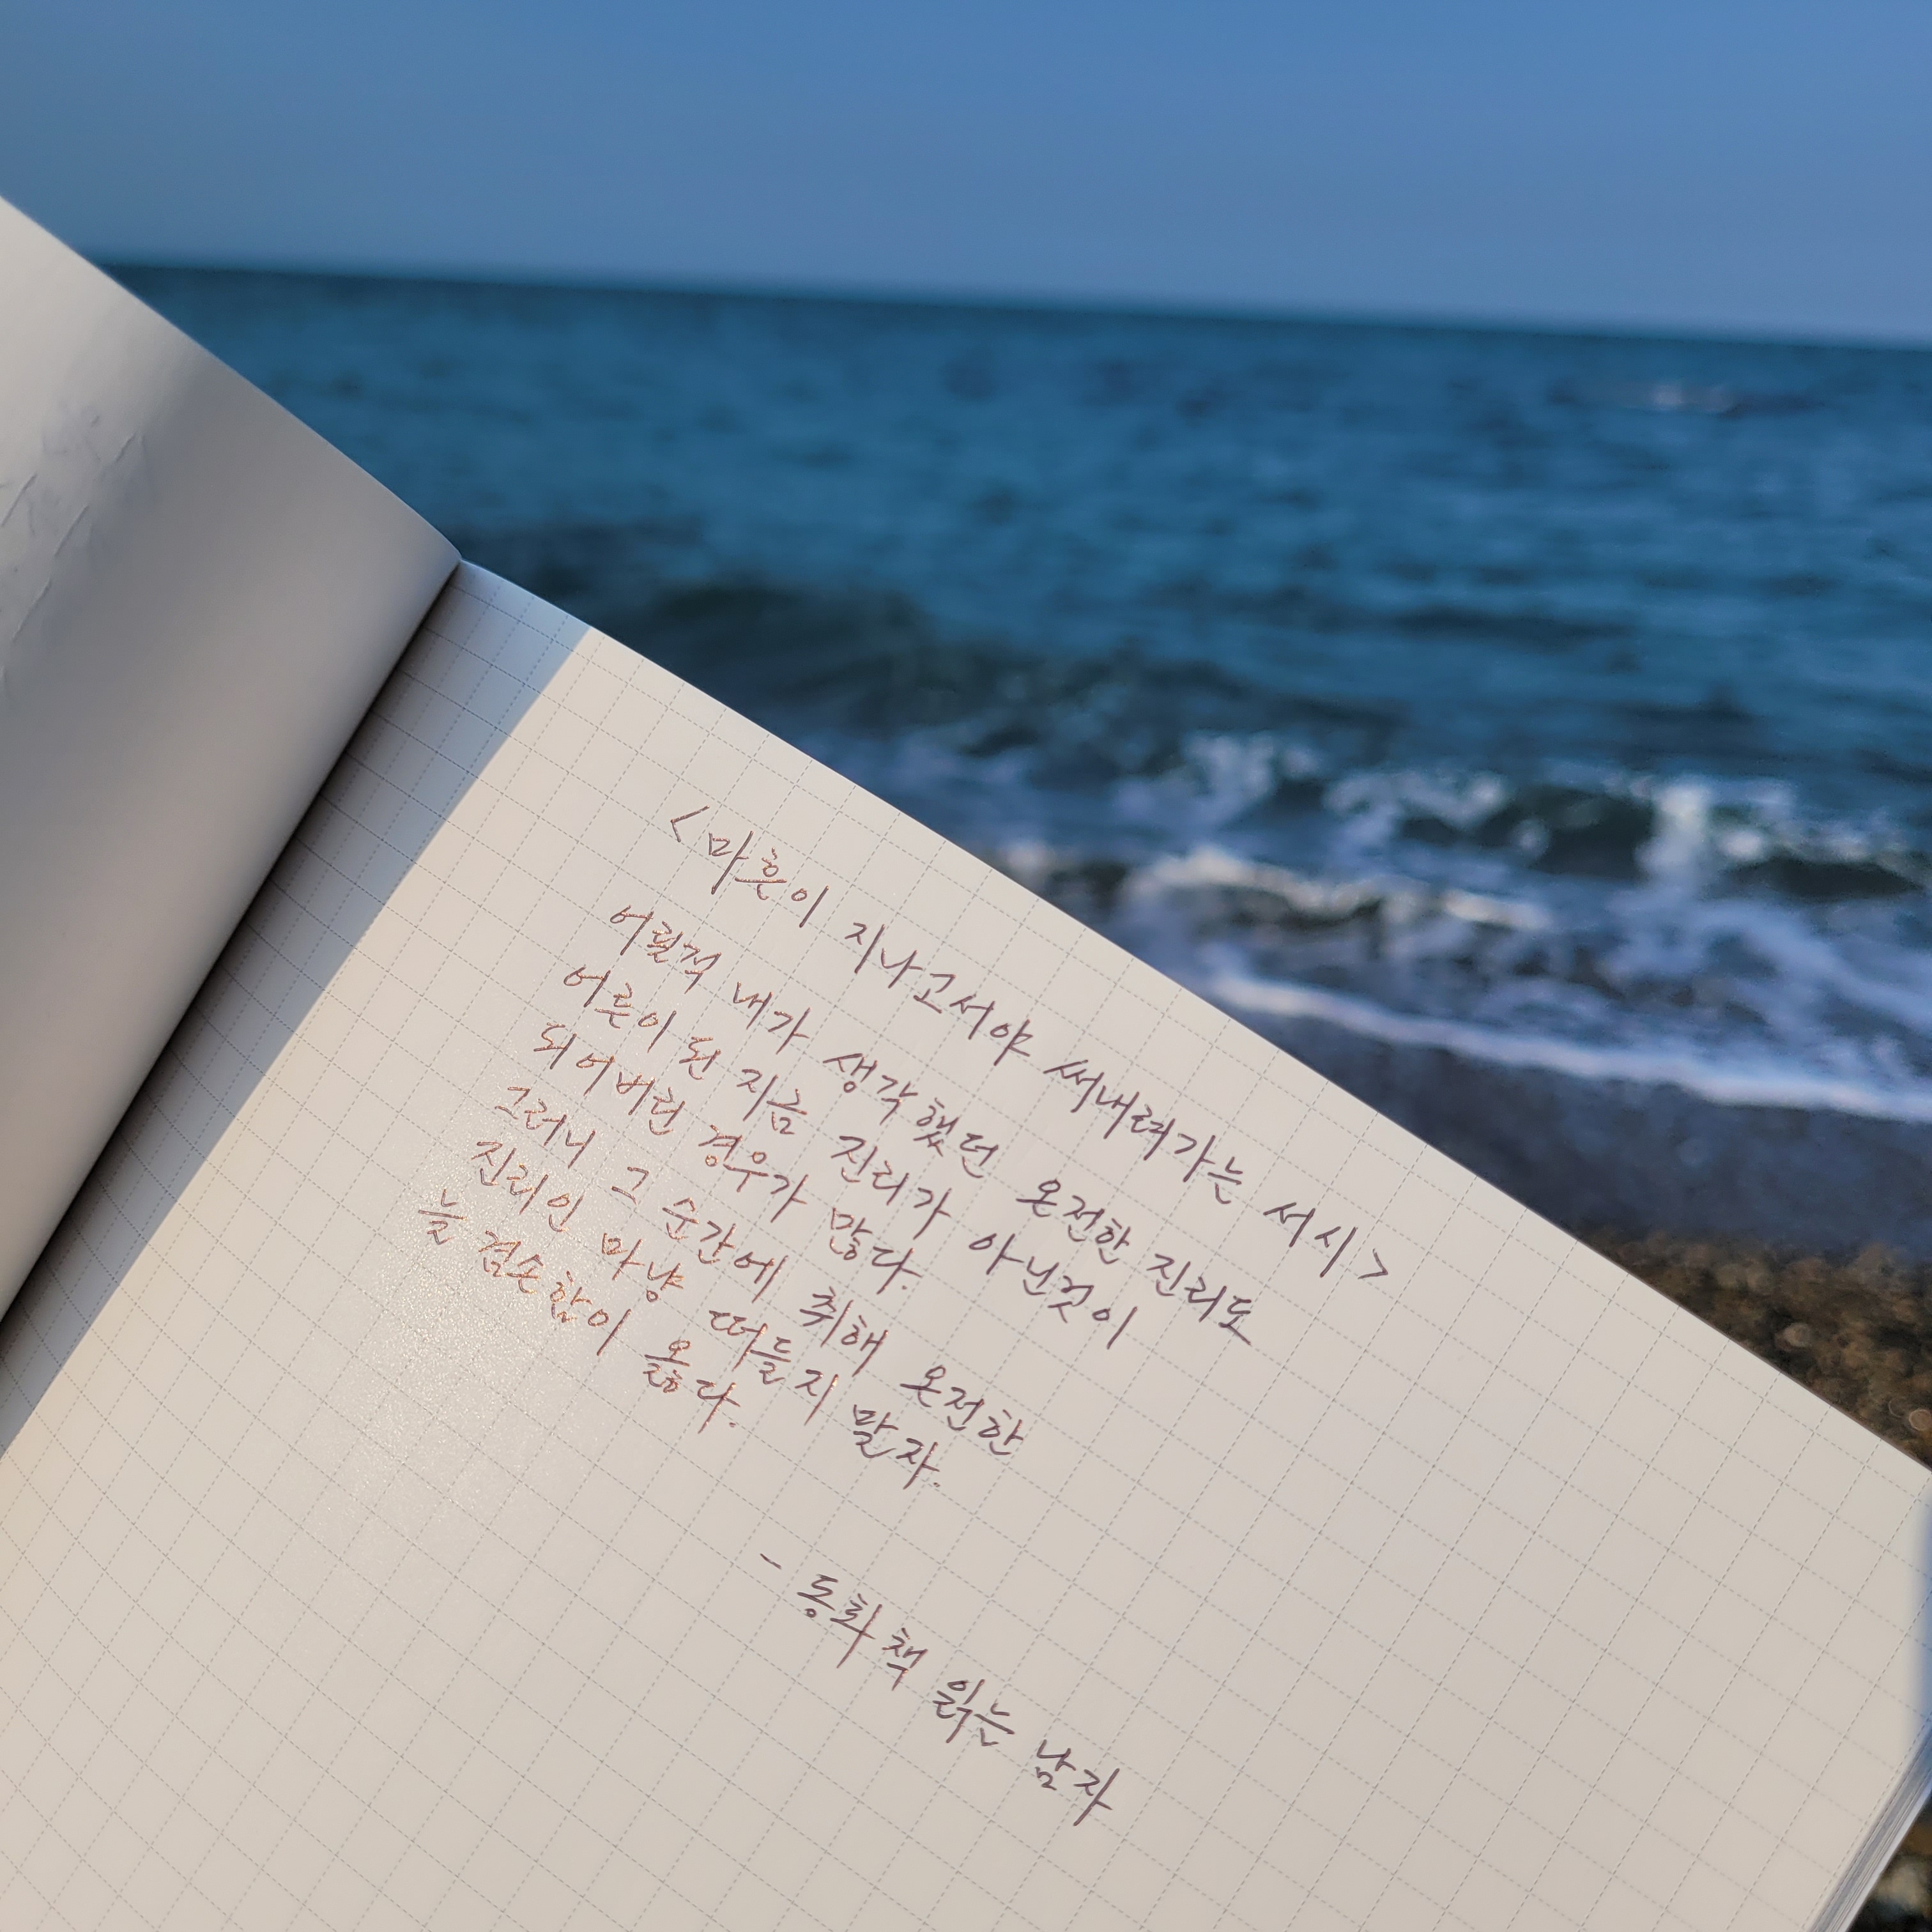 <마흔이 지나고서야 써내려가는 서시>
어릴적 내가 생각했던 온전한 진리도
어른이 된 지금 진리가 아닌것이
되어버린 경우가 많다.
그러니 그 순간에 취해 온전한
진리인 마냥 떠들지 말자.
늘 겸손함이 옳다.
- 동화책 읽는 남자